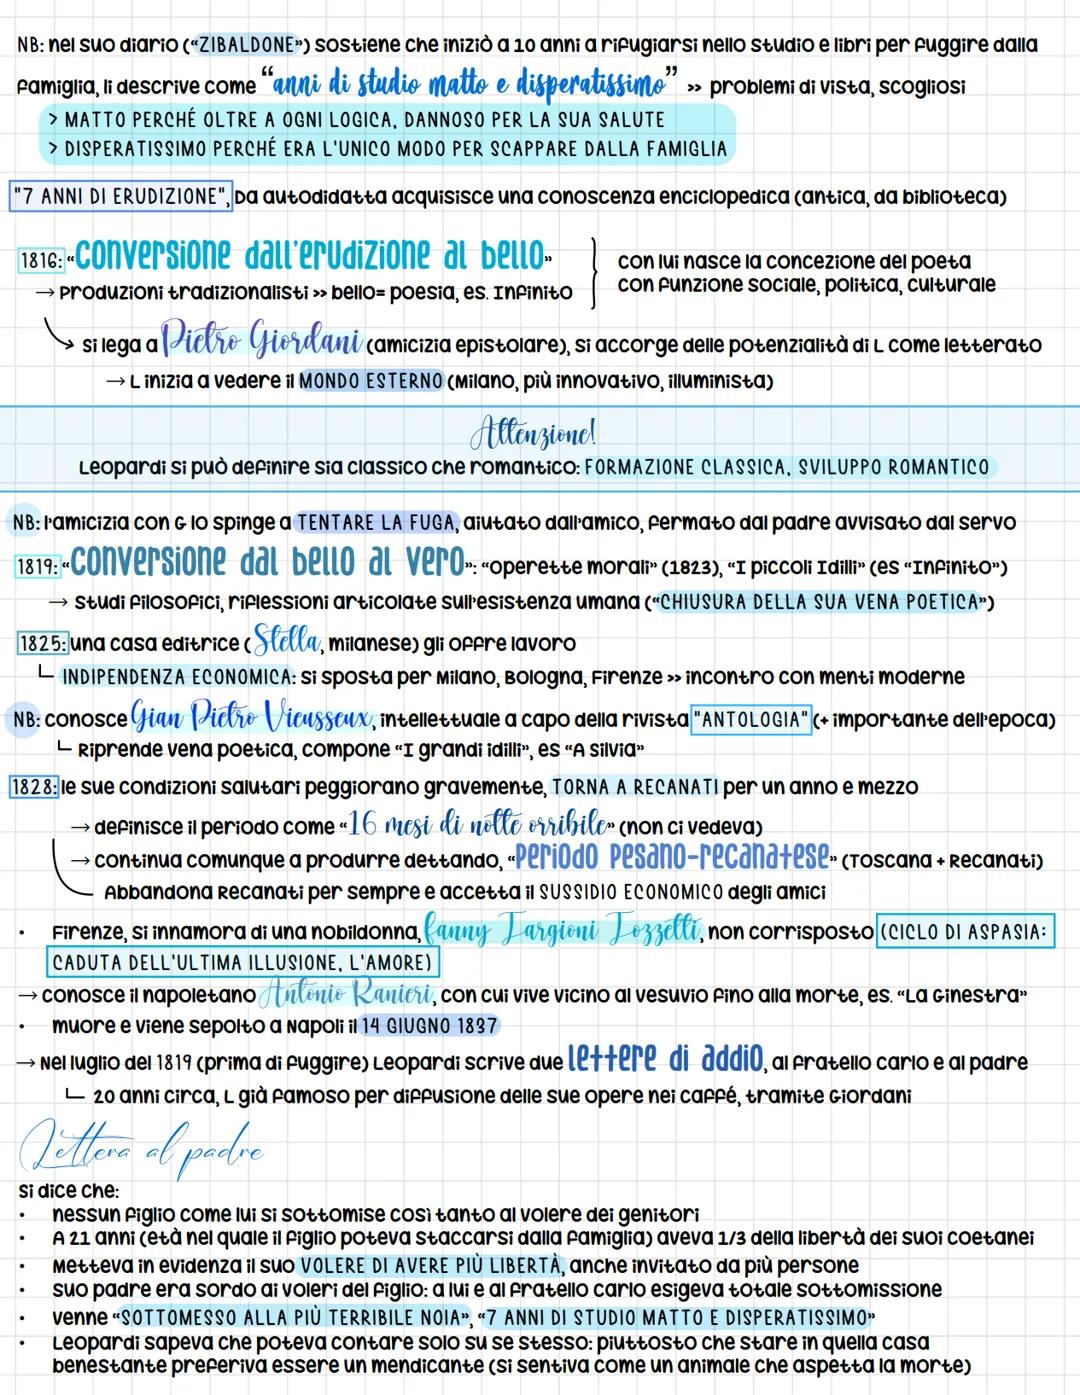 NB: nel suo diario («ZIBALDONE») sostiene che iniziò a 10 anni a rifugiarsi nello studio e libri per fuggire dalla
famiglia, li descrive come “anni di studio matto e disperatissimo” >> problemi di vista, scogliosi
> MATTO PERCHÉ OLTRE A OGNI LOGICA, DANNOSO PER LA SUA SALUTE
> DISPERATISSIMO PERCHÉ ERA L'UNICO MODO PER SCAPPARE DALLA FAMIGLIA
"7 ANNI DI ERUDIZIONE", Da autodidatta acquisisce una conoscenza enciclopedica (antica, da biblioteca)
1816: «conversione dall'erudizione al bello»
→ Produzioni tradizionalisti >> bello= poesia, es. Infinito
con lui nasce la concezione del poeta
con funzione sociale, politica, culturale
si lega a Pietro Giordani (amicizia epistolare), si accorge delle potenzialità di L come letterato
→ L inizia a vedere il MONDO ESTERNO (Milano, più innovativo, illuminista)
Attenzione!
Leopardi si può definire sia classico che romantico: FORMAZIONE CLASSICA, SVILUPPO ROMANTICO
NB: l'amicizia con G lo spinge a TENTARE LA FUGA, aiutato dall'amico, fermato dal padre avvisato dal servo
1819: «conversione dal bello al vero»: “operette morali” (1823), “I piccoli Idilli” (es “Infinito”)
→ Studi filosofici, riflessioni articolate sull'esistenza umana (“CHIUSURA DELLA SUA VENA POETICA”)
1825: una casa editrice (Stella, milanese) gli offre lavoro
INDIPENDENZA ECONOMICA: si sposta per Milano, Bologna, Firenze >> incontro con menti moderne
NB: conosce Gian Pietro Vieusseux, intellettuale a capo della rivista "ANTOLOGIA" (+ importante dell'epoca)
Riprende vena poetica, compone “I grandi idilli”, es “A silvia”
1828: le sue condizioni salutari peggiorano gravemente, TORNA A RECANATI per un anno e mezzo
→ definisce il periodo come «16 mesi di notte orribile» (non ci vedeva)
→ continua comunque a produrre dettando, «Periodo Pesano-recanatese» (Toscana + Recanati)
Abbandona Recanati per sempre e accetta il SUSSIDIO ECONOMICO degli amici
• Firenze, si innamora di una nobildonna, fanny Targioni Tozzetti, non corrisposto (CICLO DI ASPASIA:
CADUTA DELL'ULTIMA ILLUSIONE, L'AMORE)
→ conosce il napoletano Antonio Ranieri, con cui vive vicino al vesuvio fino alla morte, es. “La Ginestra”
• muore e viene sepolto a Napoli il 14 GIUGNO 1837
→ Nel luglio del 1819 (prima di fuggire) Leopardi scrive due lettere di addio, al fratello carlo e al padre
20 anni circa, L già famoso per diffusione delle sue opere nei caffé, tramite Giordani
Lettera al padre
si dice che:
• nessun figlio come lui si sottomise così tanto al volere dei genitori
• A 21 anni (età nel quale il figlio poteva staccarsi dalla famiglia) aveva 1/3 della libertà dei suoi coetanei
• Metteva in evidenza il suo VOLERE DI AVERE PIÙ LIBERTÀ, anche invitato da più persone
• suo padre era sordo ai voleri del figlio: a lui e al fratello carlo esigeva totale sottomissione
• venne «SOTTOMESSO ALLA PIÙ TERRIBILE NOIA», «7 ANNI DI STUDIO MATTO E DISPERATISSIMO»
• Leopardi sapeva che poteva contare solo su se stesso: piuttosto che stare in quella casa
benestante preferiva essere un mendicante (si sentiva come un animale che aspetta la morte)